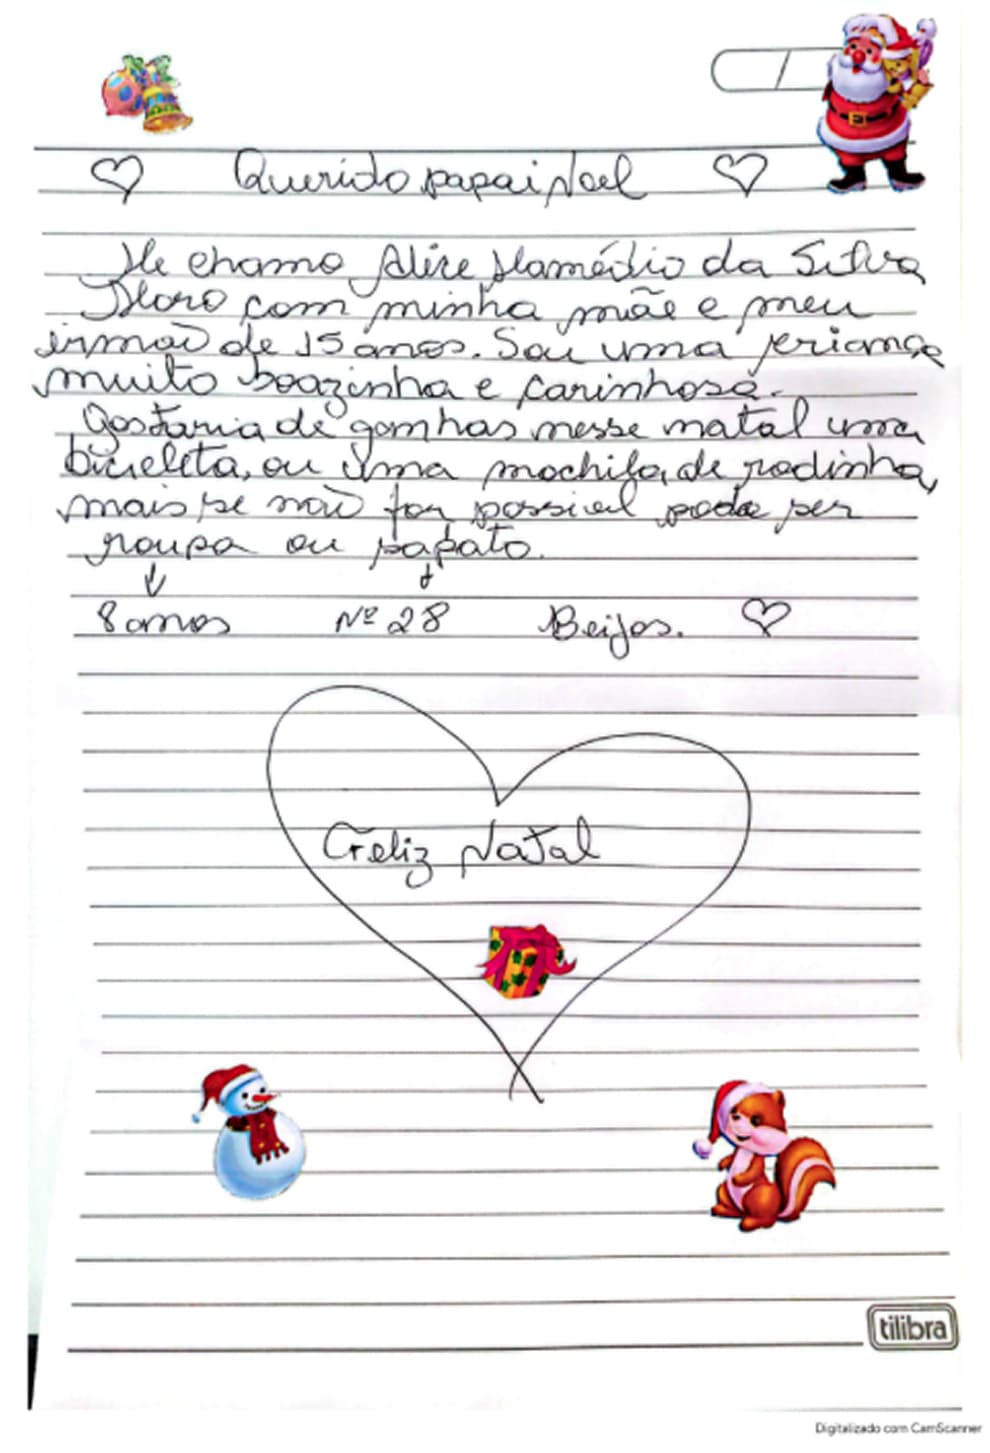 Querido papai Noel
Me chamo Alice Mamédio da Silva
Moro com minha mãe e meu
irmão de 15 anos. Sou uma criança
muito boazinha e carinhosa.
Gostaria de ganhas nesse natal uma
bicicleta, ou uma mochila, de rodinha,
mais se não for possivel pode ser
roupa ou sapato.
8 anos Nº 28 Beijos.
Feliz Natal
tilibra
Digitalizado com CamScanner